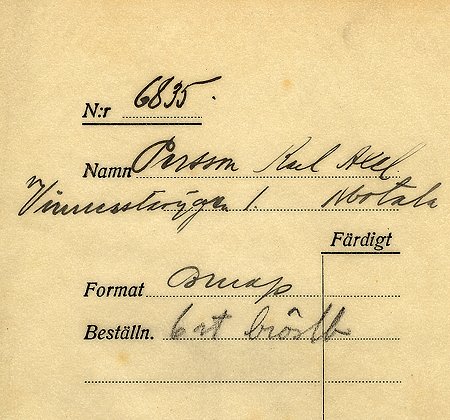 N:r 6835.
Namn Persson Karl Axel
1. Motala
Färdigt
Format
Beställn. 6 st bröstb